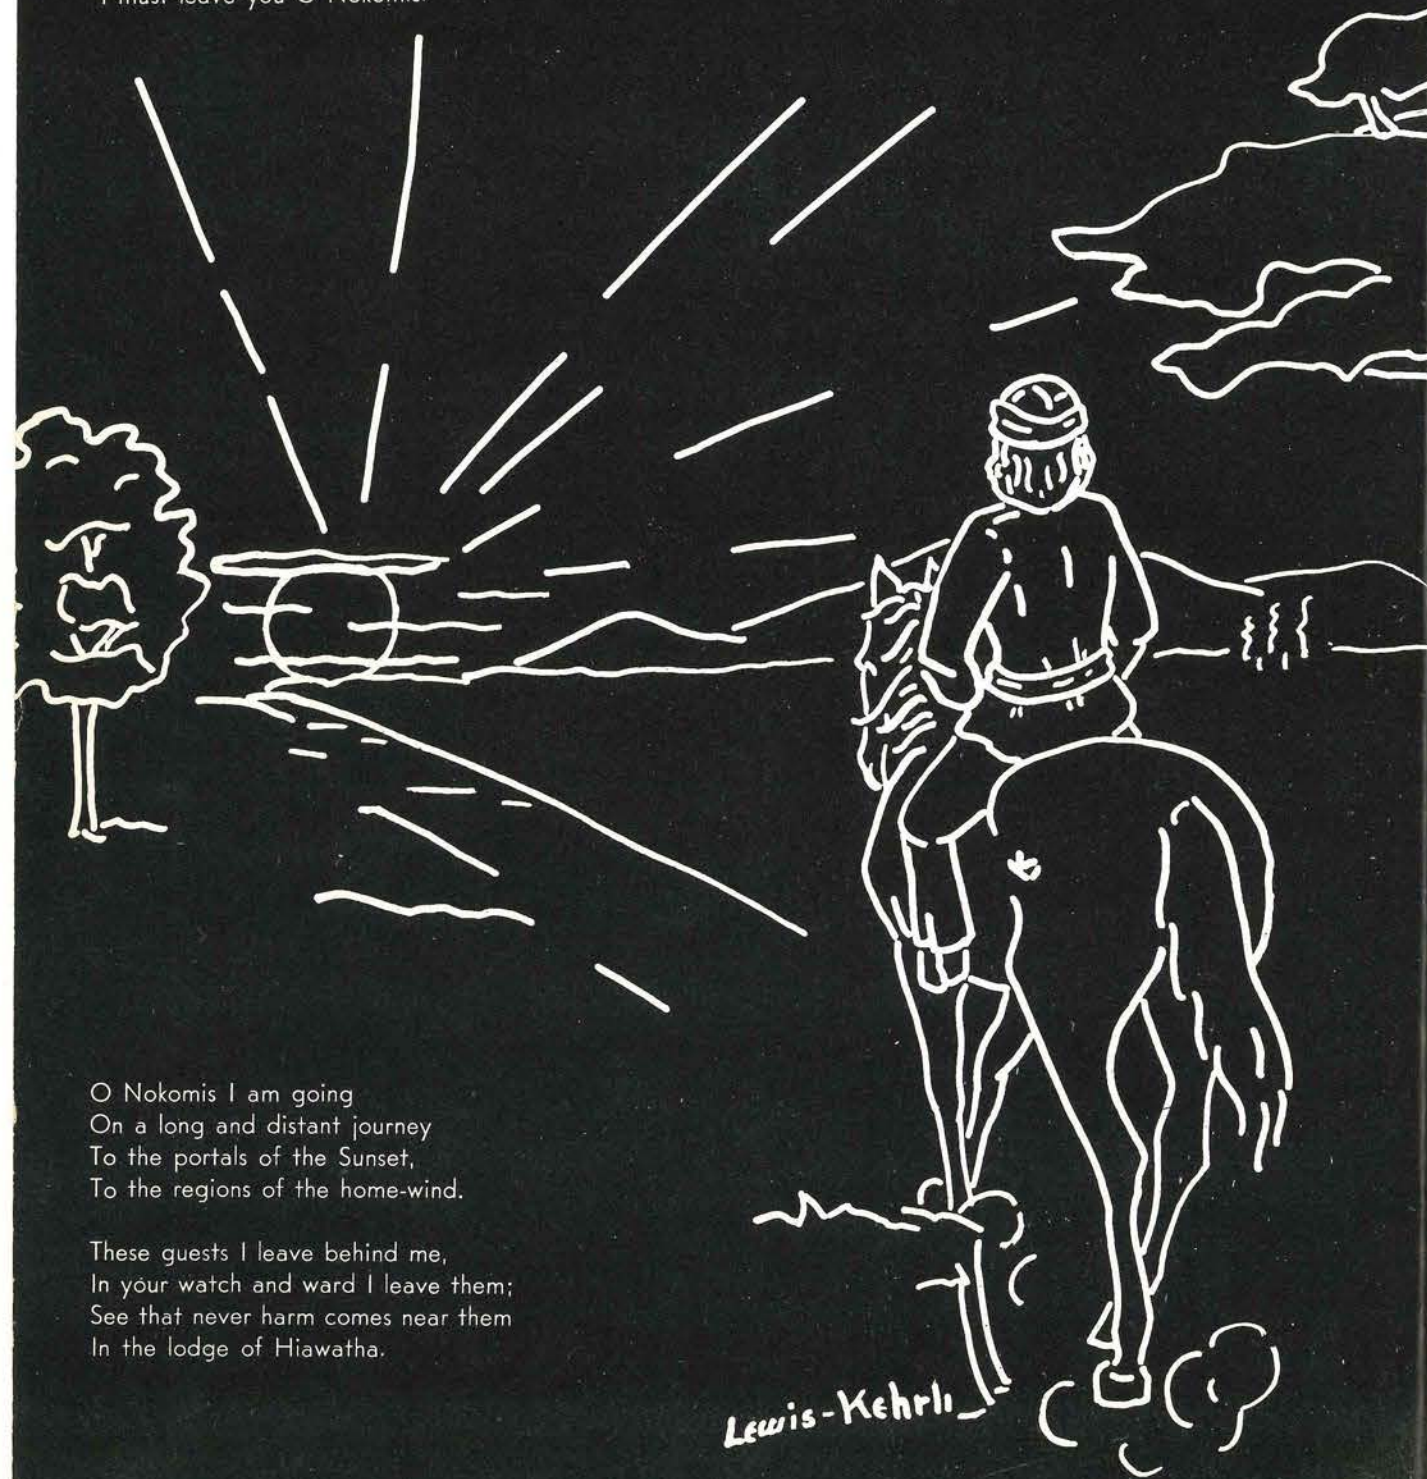 I must leave you O Nokomis.
O Nokomis I am going
On a long and distant journey
To the portals of the Sunset,
To the regions of the home-wind.
These guests I leave behind me,
In your watch and ward I leave them;
See that never harm comes near them
In the lodge of Hiawatha.
Lewis-Kehrli